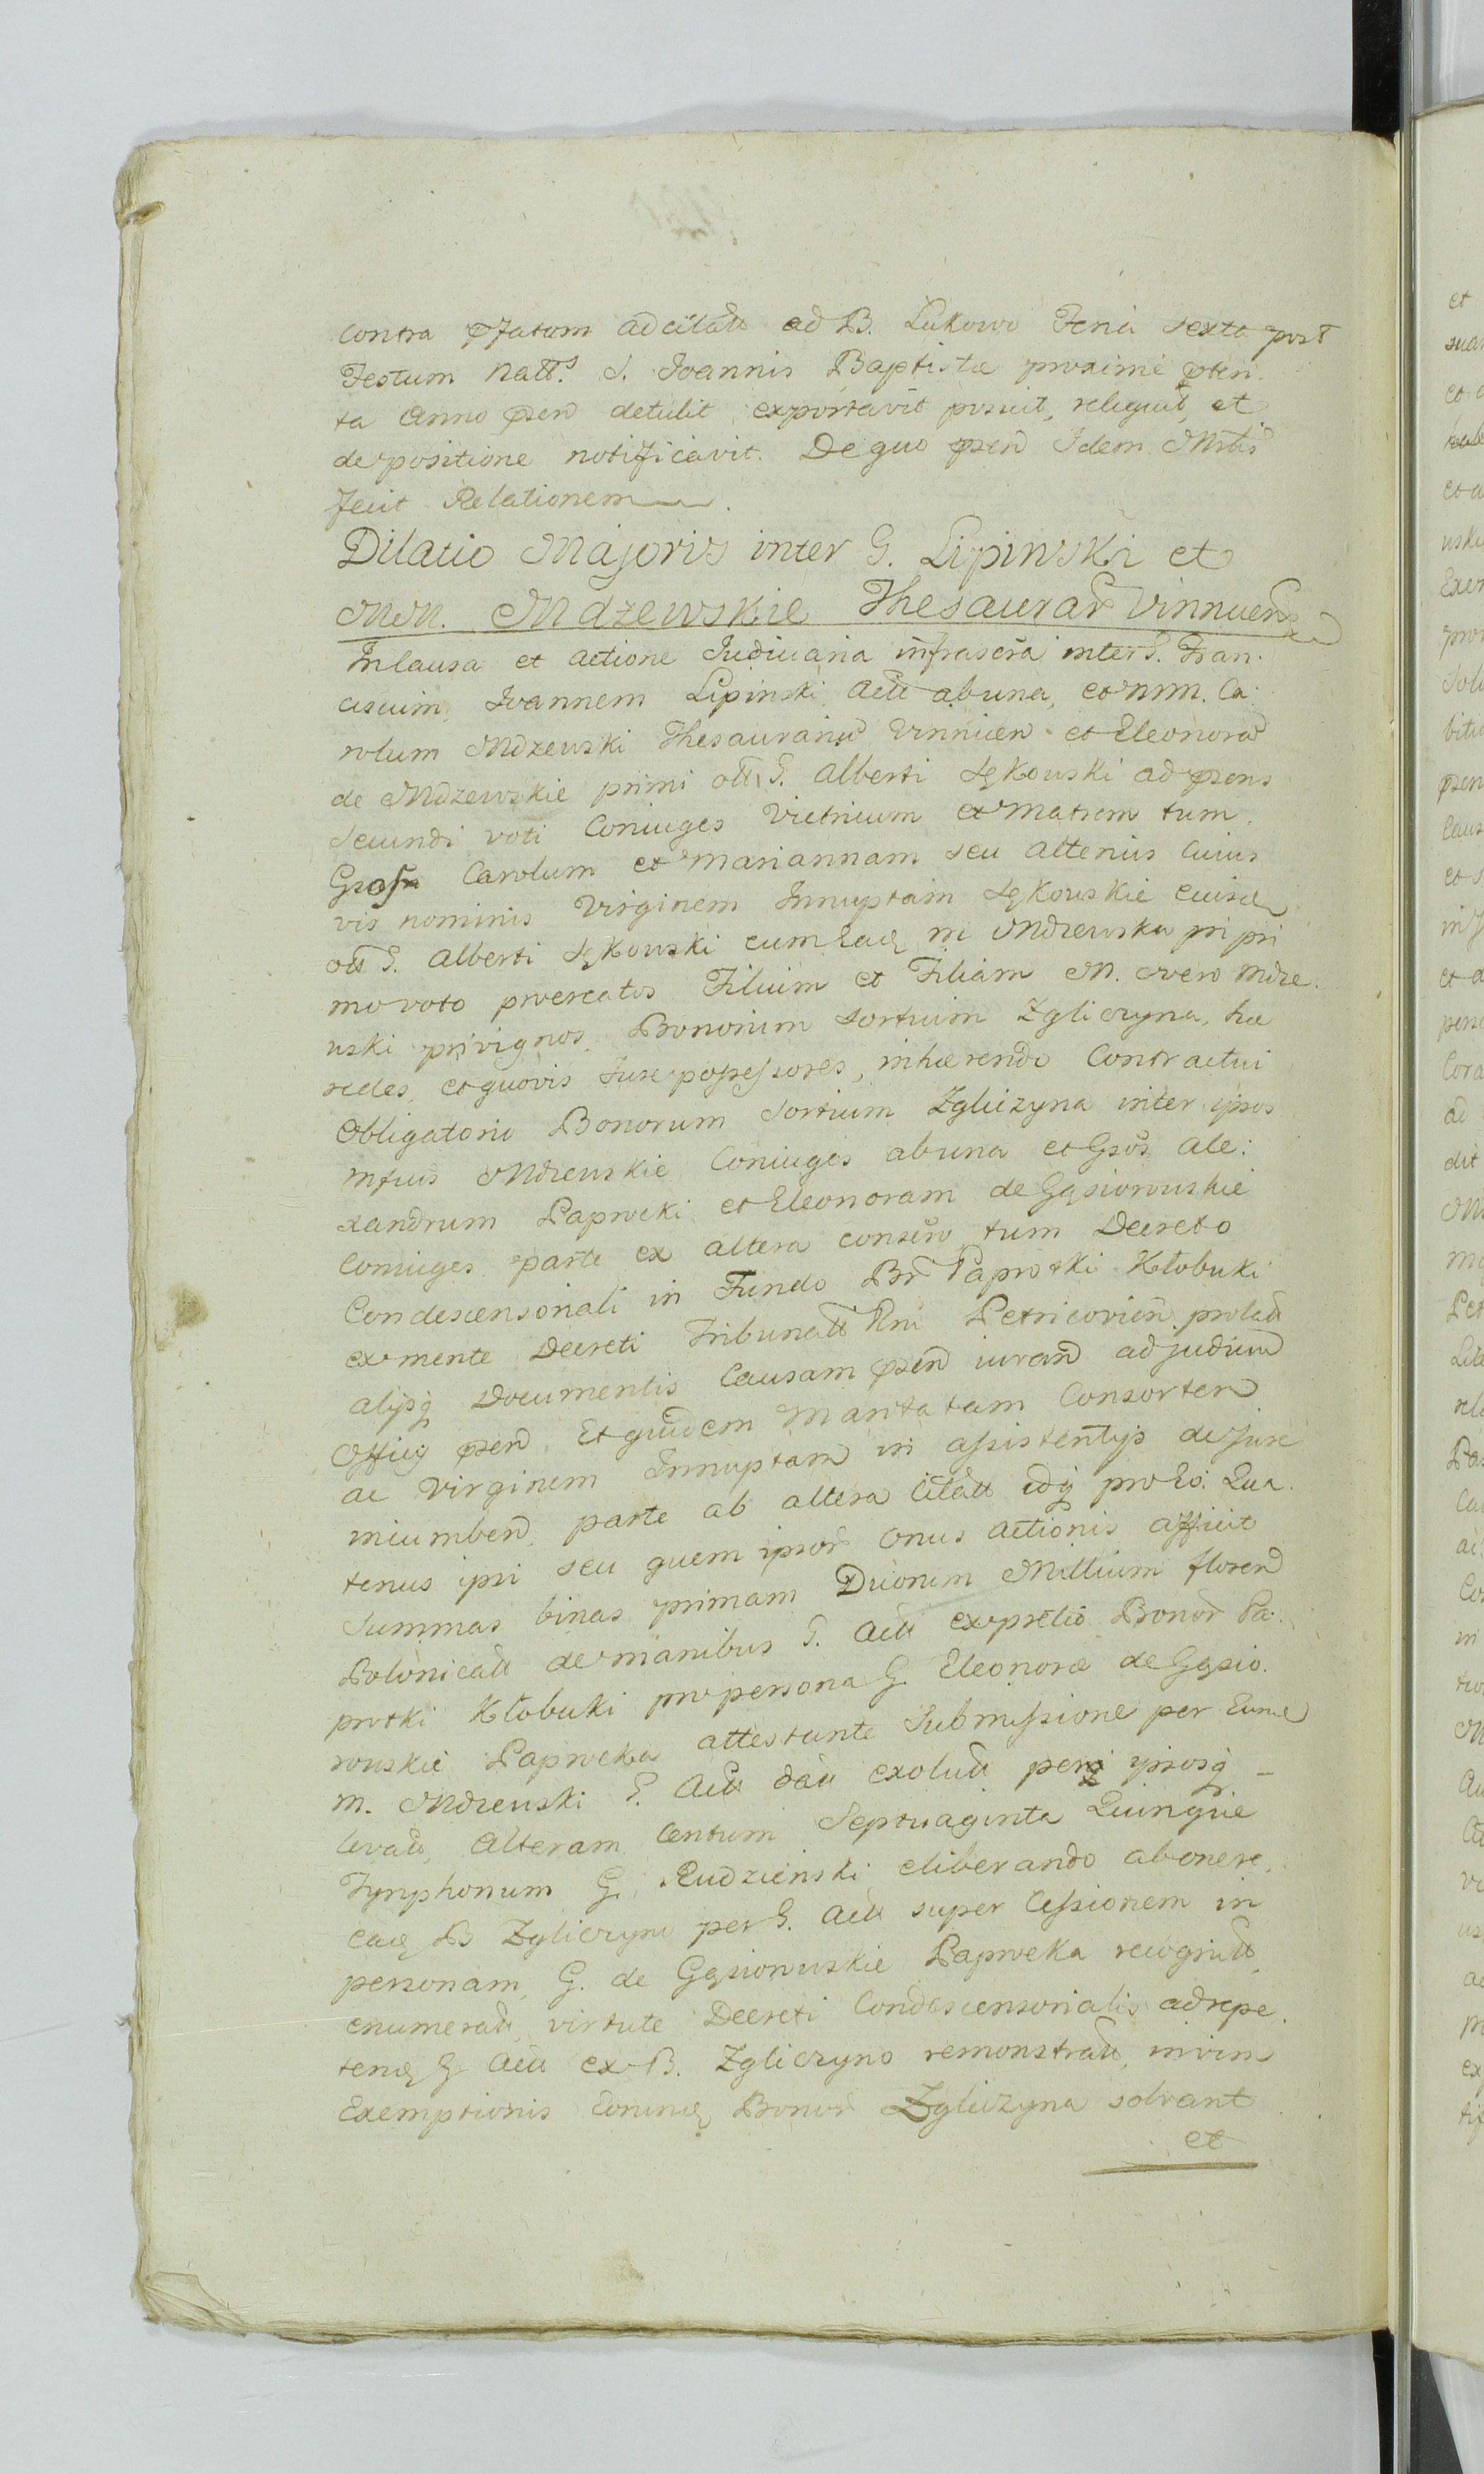 contra pfatum adcitatt ad B. Lukowo Feria sexta post
Festum Natt.s S. Joannis Baptistæ proxime pten.
ta Anno psen detulit, exportavit posuit, reliquit, et
depositione notificavit. De quo psen Idem Mrlis
fecit Relationem.
Dilatio Majoris inter G. Lipinski et
MM. Mdzewskie Thesaurar Vinnicen
In causa et actione Judiciaria infrascra inter G. Fran.
ciscum, Joannem Lipinski Actt ab una, et MM. Ca.
rolum Mdzewski Thesaurariu Vinnicen et Eleonora
de Mdzewskie primi ott G. Alberti Sękowski ad psens
secundi voti Coniuges Vitricum et Matrem tum.
Gsos Carolum et Mariannam seu alterius cuius
vis nominis Virginem Innuptam Sękowskie eiusd
ott G. Alberti Sękowski cum Ead M Mdzewska pri pri
mo voto procreatos Filium et Filiam M. vero Mdze.
wski privignos, Bonorum Sortium Zgliczyna, hæ
redes, et quovis Jure possessores, inhærendo Contractui
Obligatorio Bonorum Sortium Zgliczyna inter ipsos
Mfcos Mdzewskie Coniuges ab una et Gsos Ale:
xandrum Paprocki et Eleonoram de Gąsiorowskie
Coniuges parte ex altera conscro tum Decreto
Condescensoriali in Fundo Br Paprotki Kłobuki
ex mente Decreti Tribunatt Rni Petricovien prolatt
alysq Documentis Causam psen iuran ad judiciu
Officy psen. Et quidem Maritatam Consortem
ac Virginem Innuptam in assistentys de jure
incumben. parte ab altera Citatt idq pro Eo. Qua.
tenus ipsi seu quem ipsor Onus actionis afficit
Summas binas primam Duorum Millium floren
Polonicatt de manibus G. Actt ex pretio Bonor Pa.
protki Kłobuki pro persona G. Eleonoræ de Gąsio.
rowskie Paprocka attestante Submissione per Eund
M. Mdzewski G. Actt datt exolutt perq ipsosq
levatt, Alteram Centum Septuaginta Quinque
Tynphonum G. Rudzieński eliberando ab onere
eaq B Zgliczyno per G. Actt super Cessionem in
personam, G. de Gąsiorowskie Paprocka recognitt
enumeratt, virtute Decreti Condescensorialis ad repe.
tend G Actt ex B. Zgliczyno remonstratt, in vim
Exemptionis Eorund Bonor Zgliczyna solvant
et